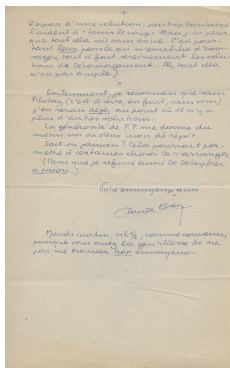 l'espoir d'une solution pas trop lointaine
l'aident à tenir le coup. Mais j'ai peur
que tout cela soit sans issue. C'est pour-
tant leur pensée qui m'empêche d'envi-
sager tout à fait sereinement les solu-
tions de découragement. Ah, tout cela
n'est pas simple!
Évidemment, je reconnais que sans
(c'est-à-dire, en fait, sans vous)
j'en serais déjà au point où il n'y a
plus d'autres solutions.
La générosité de P.P. me donne du
moins un ou deux mois de répit.
Jusqu'à janvier? Cela pourrait per-
mettre à certaines choses de s'arranger.
(Parce que je refuse aussi de désespérer
a priori...)
Votre ennuyeux ami
Mardi matin, 11h½, comme convenu,
puisque vous avez la gentillesse de ne
pas me trouver trop ennuyeux...